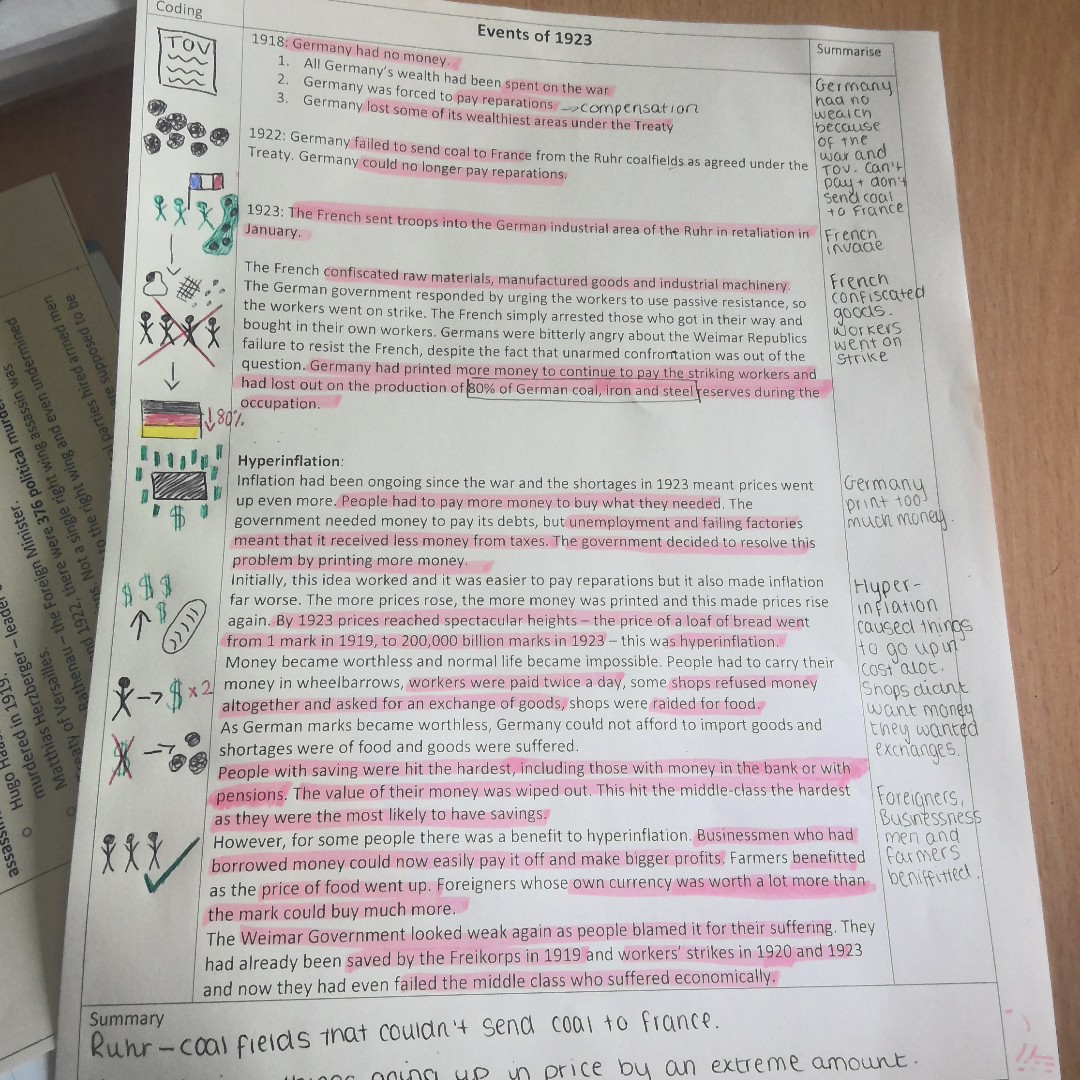 Coding
Events of 1923
Summarise
TOV
1918: Germany had no money.
1. All Germany's wealth had been spent on the war
2. Germany was forced to pay reparations → compensation
3. Germany lost some of its wealthiest areas under the Treaty
1922: Germany failed to send coal to France from the Ruhr coalfields as agreed under the
Treaty. Germany could no longer pay reparations.
Germany
had no
wealth
because
of the
war and
TOV. Can't
pay + don't
send coal
to France
1923: The French sent troops into the German industrial area of the Ruhr in retaliation in
January.
French
invade
The French confiscated raw materials, manufactured goods and industrial machinery.
The German government responded by urging the workers to use passive resistance, so
the workers went on strike. The French simply arrested those who got in their way and
bought in their own workers. Germans were bitterly angry about the Weimar Republics
failure to resist the French, despite the fact that unarmed confrontation was out of the
question. Germany had printed more money to continue to pay the striking workers and
had lost out on the production of 80% of German coal, iron and steel reserves during the
occupation.
French
confiscated
goods.
workers
went on
strike
↓80%
Hyperinflation:
Inflation had been ongoing since the war and the shortages in 1923 meant prices went
up even more. People had to pay more money to buy what they needed. The
government needed money to pay its debts, but unemployment and failing factories
meant that it received less money from taxes. The government decided to resolve this
problem by printing more money.
$
Germany
print too
much money.
Initially, this idea worked and it was easier to pay reparations but it also made inflation
far worse. The more prices rose, the more money was printed and this made prices rise
again. By 1923 prices reached spectacular heights – the price of a loaf of bread went
from 1 mark in 1919, to 200,000 billion marks in 1923 – this was hyperinflation.
Money became worthless and normal life became impossible. People had to carry their
money in wheelbarrows, workers were paid twice a day, some shops refused money
altogether and asked for an exchange of goods, shops were raided for food.
As German marks became worthless, Germany could not afford to import goods and
shortages were of food and goods were suffered.
$ $ $
$
→ $ x2
$ →
Hyper-
inflation
caused things
to go up in
cost alot.
Shops didnt
want money
they wanted
exchanges.
People with saving were hit the hardest, including those with money in the bank or with
pensions. The value of their money was wiped out. This hit the middle-class the hardest
as they were the most likely to have savings.
However, for some people there was a benefit to hyperinflation. Businessmen who had
borrowed money could now easily pay it off and make bigger profits. Farmers benefitted
as the price of food went up. Foreigners whose own currency was worth a lot more than
the mark could buy much more.
The Weimar Government looked weak again as people blamed it for their suffering. They
had already been saved by the Freikorps in 1919 and workers' strikes in 1920 and 1923
and now they had even failed the middle class who suffered economically.
Foreigners,
Businessness
men and
farmers
beniffitted.
Summary
Ruhr – coal fields that couldn't send coal to france.
going up in price by an extreme amount.
murdered in 1919,
Matthias Herzberger – leader
Treaty of Versailles.
Rathenau – the Foreign Minister.
and 1922, there were 376 political murder
Not a single right wing assassin was
to the right wing and even undermined
al parties hired armed men
re supposed to be